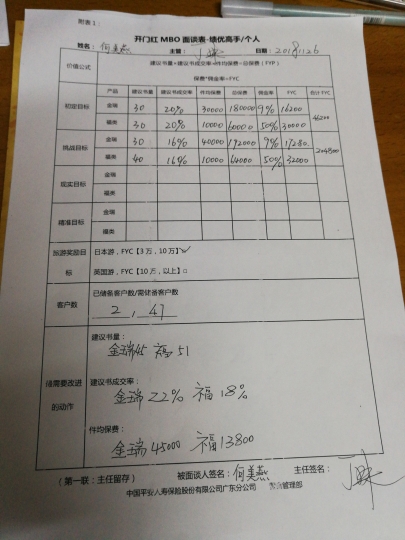 附表1：
开门红MBO面谈表-绩优高手/个人
姓名：何美燕 主管： 日期：20181126
价值公式 建议书量*建议书成交率*件均保费=总保费（FYP）
保费*佣金率=FYC
产品 建议书量 建议书成交率 件均保费 总保费 佣金率 FYC 合计FYC
初定目标 金瑞 30 20% 30000 180000 9% 16200 46200
福类 30 20% 10000 60000 50% 30000
挑战目标 金瑞 30 16% 40000 192000 9% 17280
福类 40 16% 10000 64000 50% 32000
现实目标 金瑞
福类
精准目标 金瑞
福类
旅游奖励目标 日本游，FYC【3万，10万】☑
英国游，FYC【10万，以上】□
客户数 已储备客户数/需储备客户数
2，47
建议书量：
金瑞45 福51
储需要改进的动作 建议书成交率：
金瑞22% 福18%
件均保费：
金瑞45000 福13800
（第一联：主任留存） 被面谈人签名：何美燕 主任签名：
中国平安人寿保险股份有限公司广东分公司 管理部